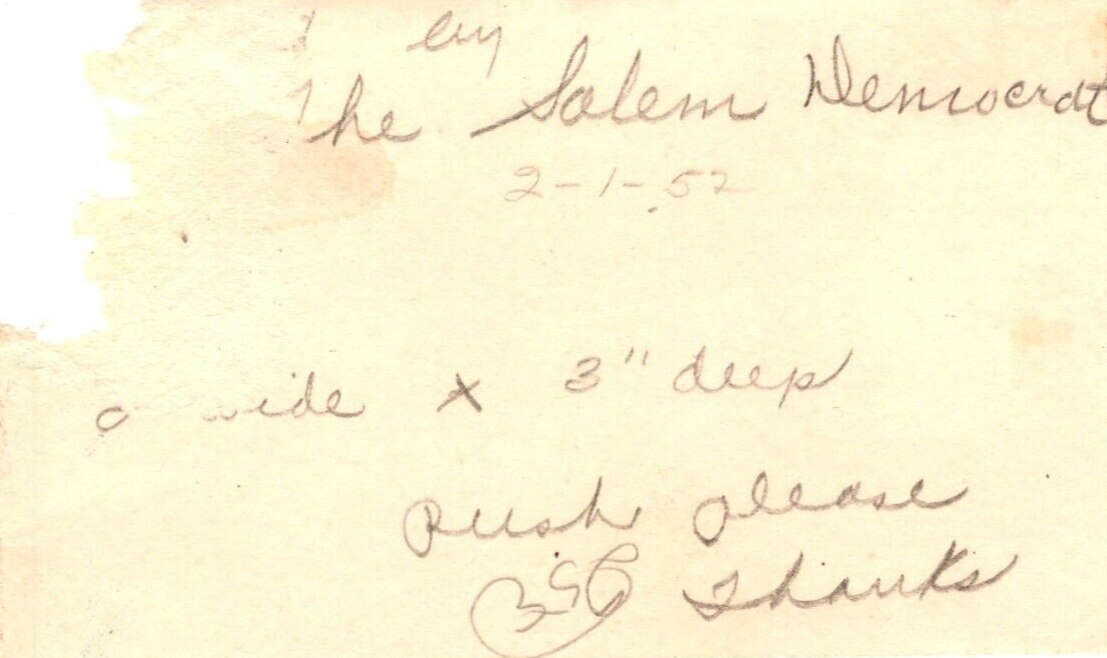 by
The Salem Democrat
2-1-52
wide x 3" deep
Rush please
Thanks